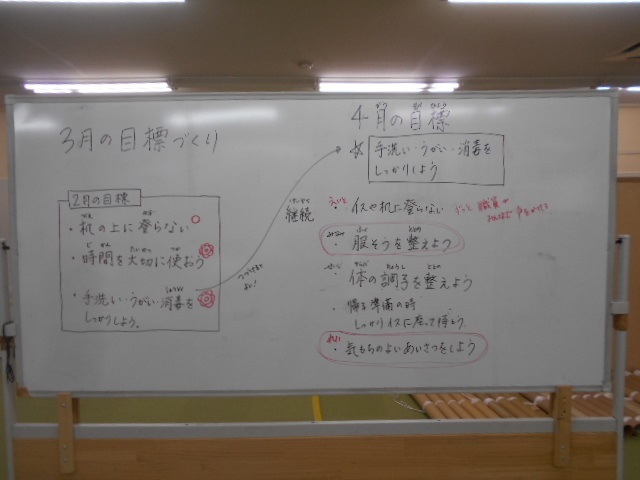 3月の目標づくり
2月の目標
・机の上に登らない
・時間を大切に使おう
・手洗い・うがい・消毒を
しっかりしよう。
継続
4月の目標
☆ 手洗い・うがい・消毒を
しっかりしよう
・イスや机に登らない
・服そうを整えよう
・体の調子を整えよう
・帰る準備の時
しっかりイスに座って待とう。
・気もちのよいあいさつをしよう